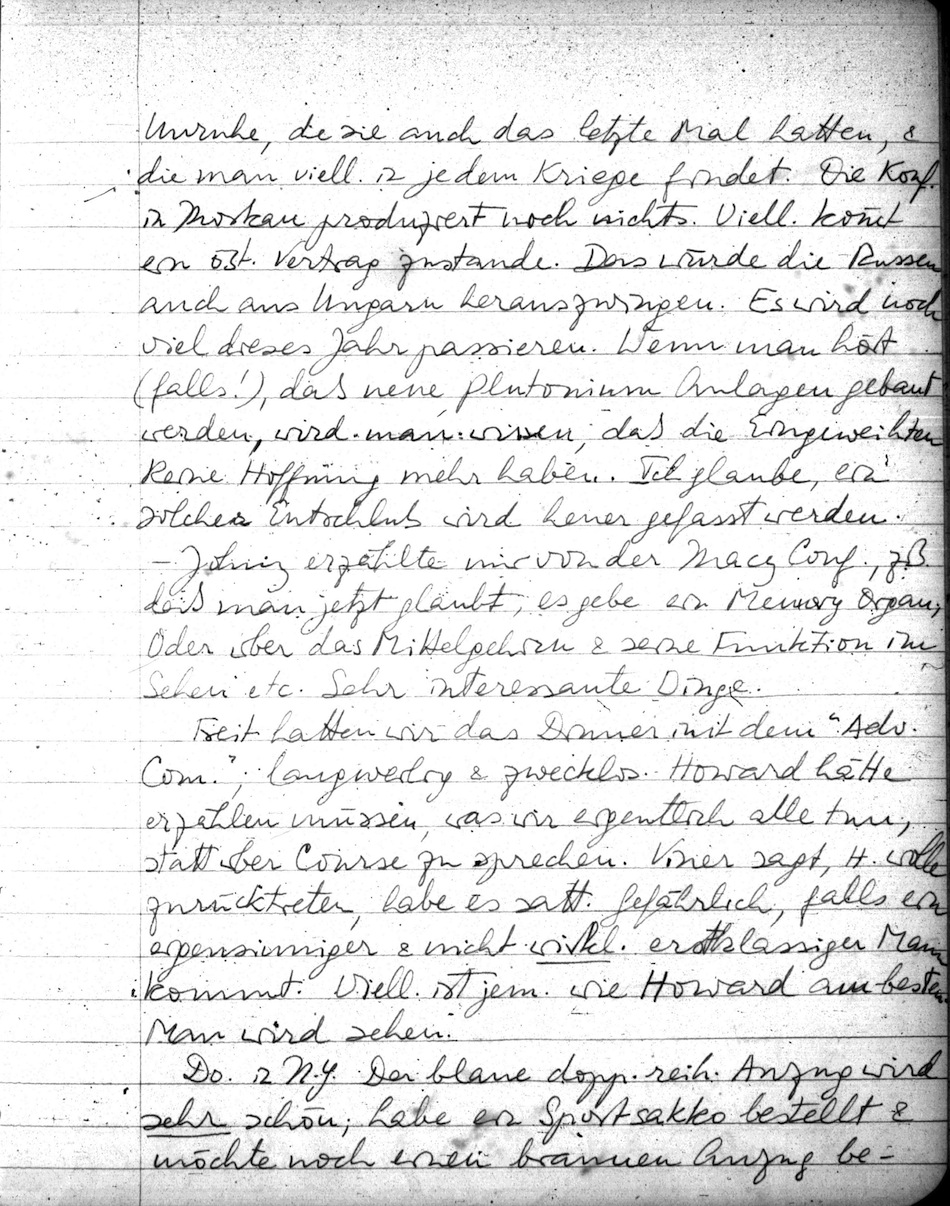 Unruhe, die sie auch das letzte Mal hatten, &
die man viell. in jedem Kriege findet. Die Konf.
in Moskau produziert noch nichts. Viell. kom̄t
ein öst. Vertrag zustande. Das würde die Russen
auch aus Ungarn herauszwingen. Es wird noch
viel dieses Jahr passieren. Wenn man hört
(falls!), daß neue Plutonium Anlagen gebaut
werden, wird man wissen, daß die Eingeweihten
keine Hoffnung mehr haben. Ich glaube, ein
solcher Entschluß wird heuer gefasst werden.
– Johny erzählte mir von der Macy Conf., zB.
daß man jetzt glaubt, es gebe ein Memory Organ,
Oder über das Mittelgehirn & seine Funktion im
Sehen etc. Sehr interessante Dinge.
Freit hatten wir das Dinner mit dem "Adv.
Com."; langweilig & zwecklos. Howard hätte
erzählen müssen, was wir eigentlich alle tun,
statt über Course zu sprechen. Viner sagt, H. wolle
zurücktreten, habe es satt. Gefährlich, falls ein
eigensinniger & nicht wirkl. erstklassiger Mann
kommt. Viell. ist jem. wie Howard am besten.
Man wird sehen.
Do. in N.Y. Der blaue dopp. reih. Anzug wird
sehr schön; habe ein Sportsakko bestellt &
möchte noch einen braunen Anzug be-